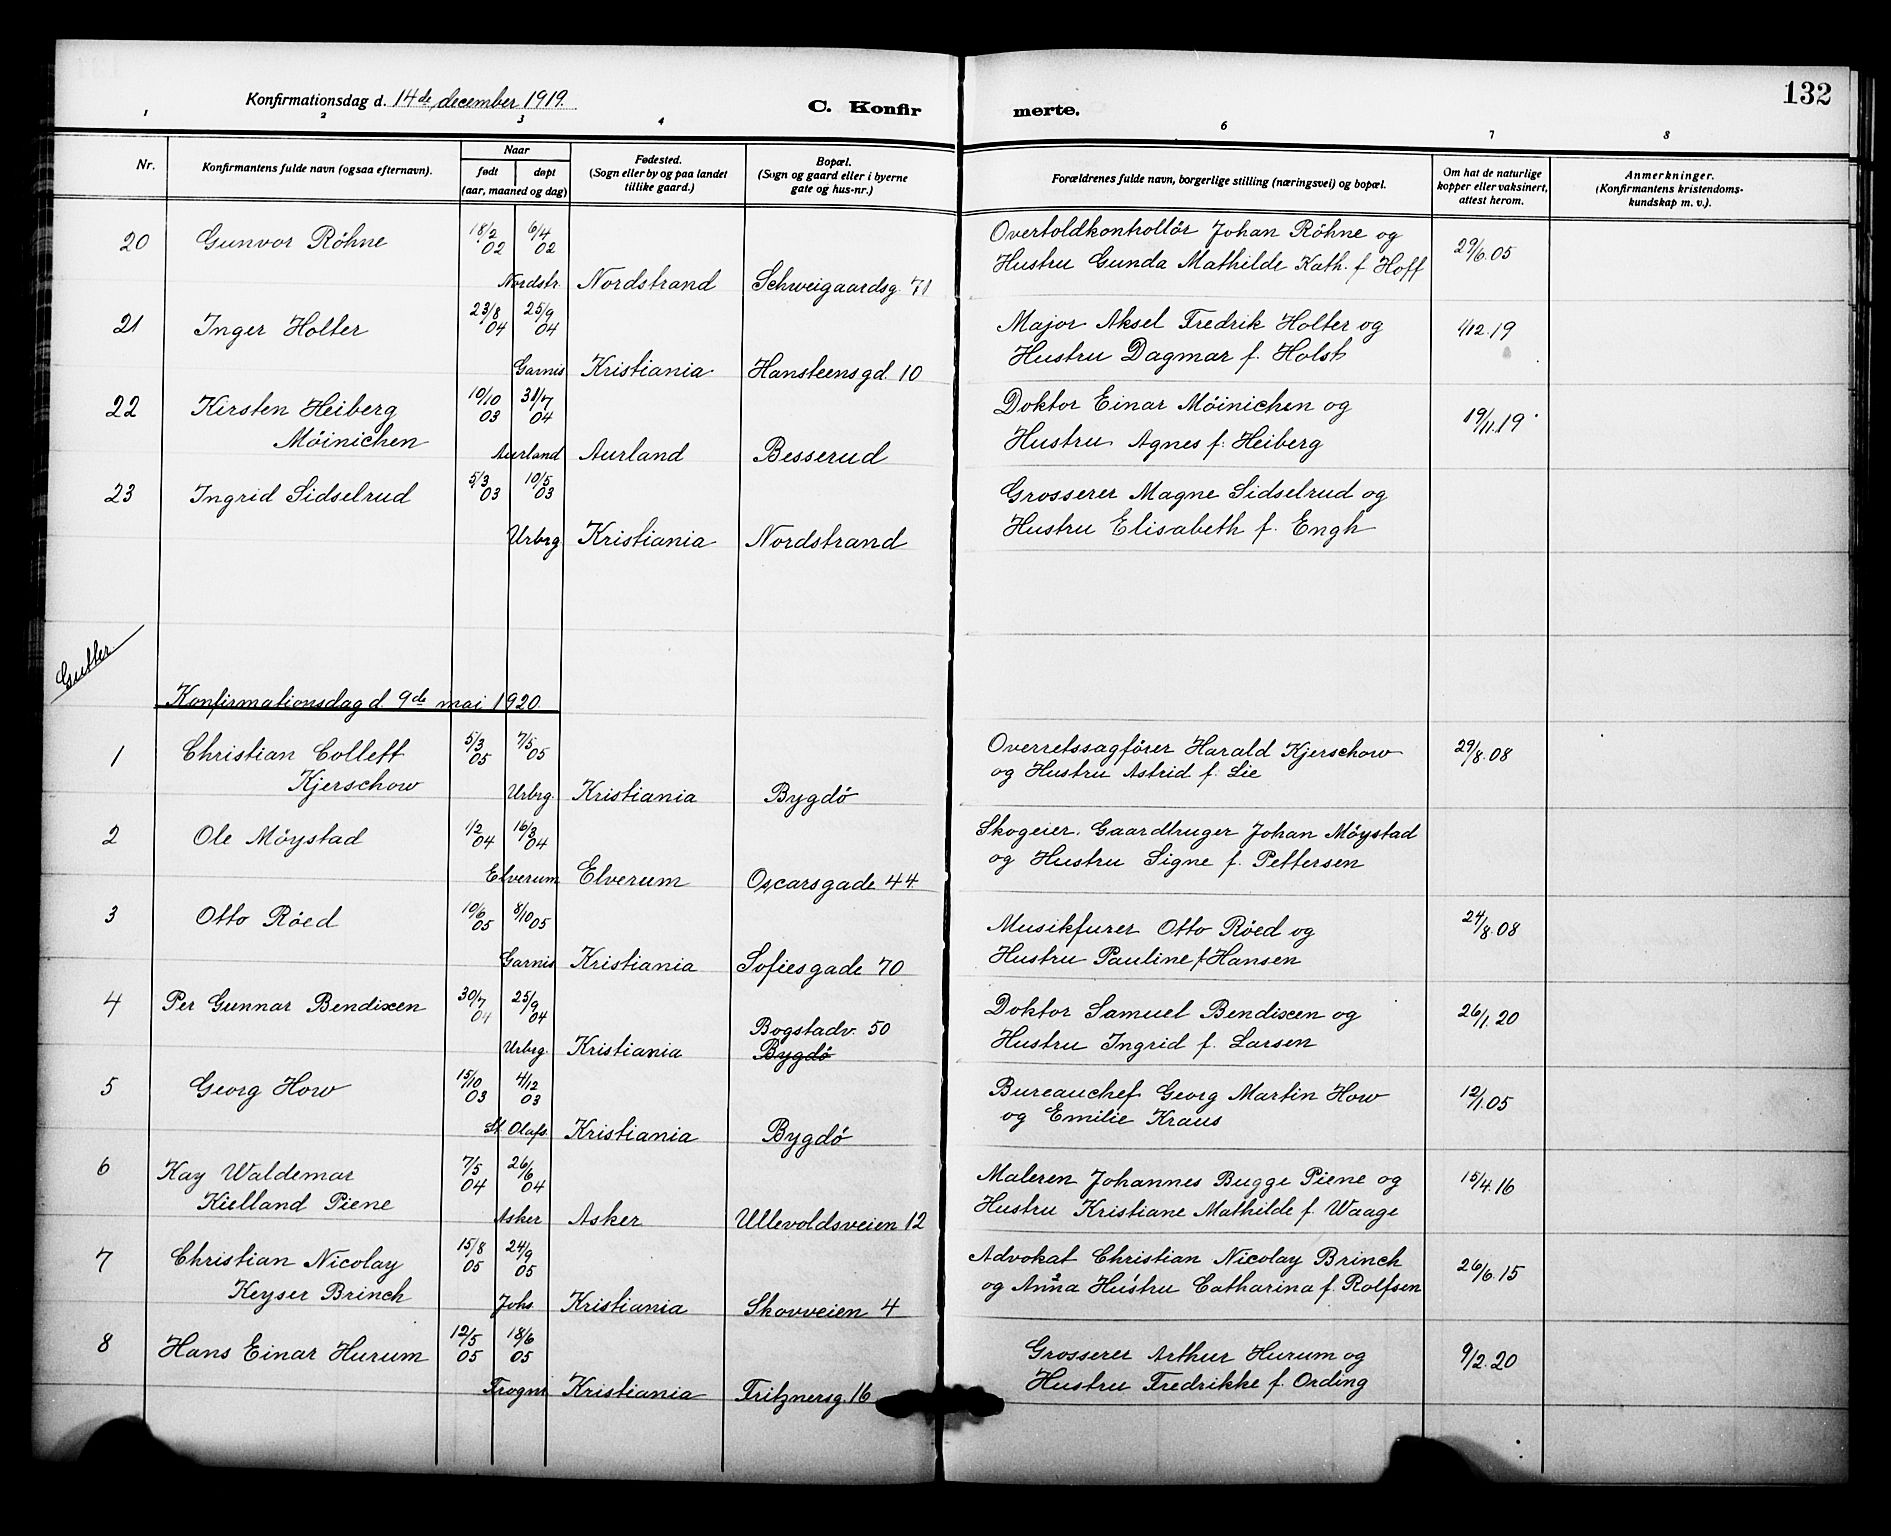 132
Konfirmationsdag d. 14de december 1919.
C. Konfirmerte.
1 2 3 4 6 7 8
Nr.
Konfirmantens fulde navn (ogsaa efternavn).
Naar
født døpt
(aar, maaned og dag)
Fødested.
(Sogn eller by og paa landet
tillike gaard.)
Bopæl.
(Sogn og gaard eller i byerne
gate og hus-nr.)
Forældrenes fulde navn, borgerlige stilling (næringsvei) og bopæl.
Om hat de naturlige
kopper eller vaksinert,
attest herom.
Anmerkninger.
(Konfirmantens kristendoms-
kundskap m. v.).
20 Gunvor Röhne 18/2 02 6/4 02 Overtoldkontrollör Johan Röhne og 29/6.05
Nordstr. Nordstrand Schweigaardsg. 71 Hustru Gunda Mathilde Kath. f Hoff
21 Inger Holter 23/8 04 25/9 04 Major Aksel Fredrik Holter og 1/12.19
Garnis Kristiania Hansteensgd. 10 Hustru Dagmar f. Holst
22 Kirsten Heiberg 10/10 03 31/7 04 Doktor Einar Möinichen og 19/11.19
Möinichen Aurland Aurland Besserud Hustru Agnes f. Heiberg
23 Ingrid Sidselrud 5/3 03 10/5 03 Grosserer Magne Sidselrud og
Urbrg Kristiania Nordstrand Hustru Elisabeth f. Engh
Gutter
Konfirmationsdag d 9de mai 1920
1 Christian Collett 5/3 05 7/5 05 Overretssagförer Harald Kjerschow 29/8.08
Kjerschow Urbrg. Kristiania Bygdö og Hustru Astrid f. Lie
2 Ole Möystad 1/2 04 16/3 04 Skogeier. Gaardbruger Johan Möystad
Elverum Elverum Oscarsgade 44 og Hustru Signe f. Pettersen
3 Otto Röed 10/6 05 8/10 05 Musikfurer Otto Röed og 24/8.08
Garnis Kristiania Sofiesgade 70 Hustru Pauline f Hansen
4 Per Gunnar Bendixen 30/7 04 25/9 04 Doktor Samuel Bendixen og 26/1.20
Bogstadv. 50
Urbrg. Kristiania Bygdö Hustru Ingrid f. Larsen
5 Georg How 15/10 03 4/12 03 Bureauchef Georg Martin How 12/1.05
St. Olafs. Kristiania Bygdö og Emilie Kraus
6 Kay Waldemar 7/5 04 26/6 04 Maleren Johannes Bugge Piene og 15/4.16
Kielland Piene Asker Asker Ullevoldsveien 12 Hustru Kristiane Mathilde f. Waage
7 Christian Nicolay 15/8 05 24/9 05 Advokat Christian Nicolay Brinch 26/6.15
Keyser Brinch Johs Kristiania Skovveien 4 og Anna Hustru Catharina f. Rolfsen
8 Hans Einar Hurum 12/5 05 18/6 05 Grosserer Arthur Hurum og 9/2.20
Frogn Kristiania Fritznersg. 16 Hustru Fredrikke f. Ording